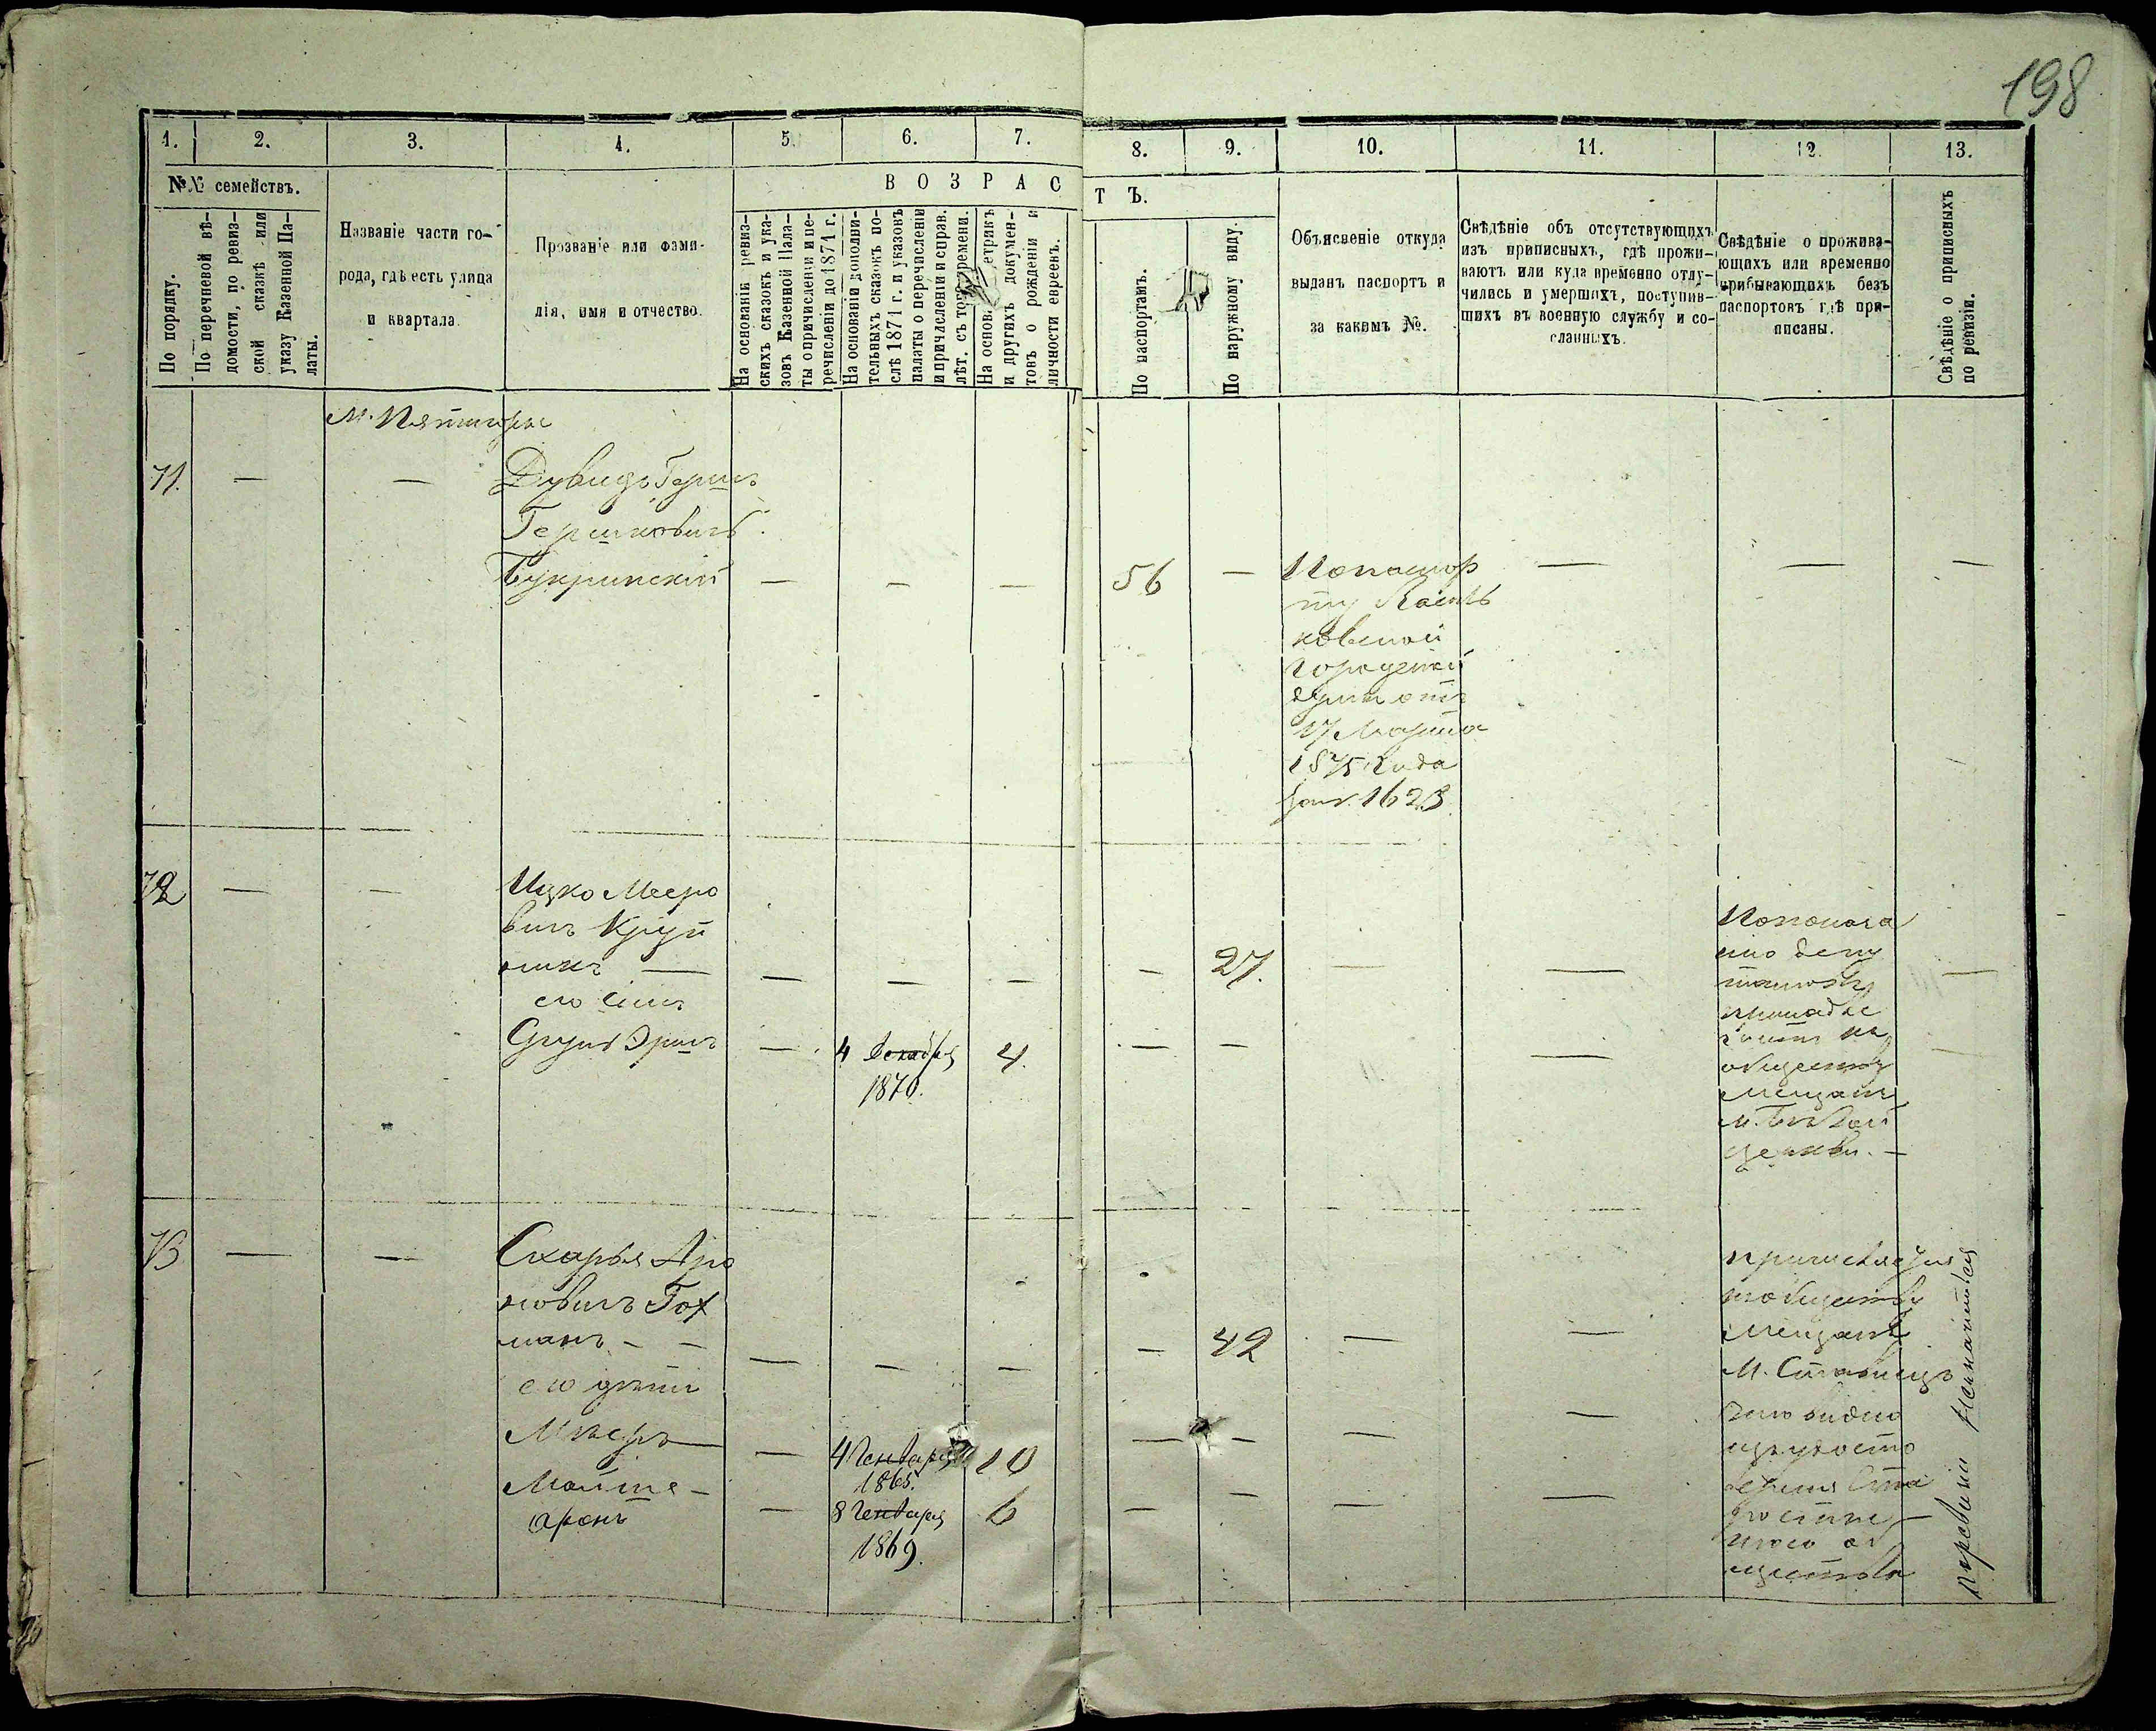 198
1. 2. 3. 4. 5. 6. 7. 8. 9. 10. 11. 12. 13.
№№ семействъ.
В О З Р А С Т Ъ.
По порядку.
По перечневой вѣ-
домости, по ревиз-
ской сказкѣ или
указу Казенной Па-
латы.
Названіе части го-
рода, гдѣ есть улица
и квартала.
Прозваніе или фами-
лія, имя и отчество.
На основаніи ревиз-
скихъ сказокъ и ука-
зовъ Казенной Пала-
ты о причисленіи и пе-
речисленіи до 1871 г.
На основаніи дополни-
тельныхъ сказокъ по-
слѣ 1871 г. и указовъ
палаты о перечисленіи
и причисленіи и справ.
лѣт. съ того времени.
На основ. етрикъ
и другихъ докумен-
товъ о рожденіи и
личности евреевъ.
По паспортамъ.
По наружному виду.
Объясненіе откуда
выданъ паспортъ и
за какимъ №.
Свѣдѣніе объ отсутствующихъ
изъ приписныхъ, гдѣ прожи-
ваютъ или куда временно отлу-
чились и умершихъ, поступив-
шихъ въ военную службу и со-
сланныхъ.
Свѣдѣніе о прожива-
ющихъ или временно
прибывающихъ безъ
паспортовъ гдѣ при-
писаны.
Свѣдѣніе о приписныхъ
по ревизіи.
м. Пятигоры
71. — —
Дувидъ Герш
Гершковичъ
Букринскій — — —
56 —
Попаспор
ту
ковской
городской
думы отъ
17 Марта
1875 года
за № 1623
— — —
72 — —
Ицко Мееро
вичъ Круп
никъ — — — —
его сынъ
Сруль Эршъ — 4 декабря 4.
1870.
— 27. — — —
— — —
Попоказа
нію депу
татовъ
принадле
житъ къ
обществу
мещанъ
м. Бѣлой
церкви. —
73 — —
Скарья Аро
новичъ Гох
манъ — — — — —
его дѣти
Мееръ — — 4 Генваря 10
1865.
Мойше — — 8 Генваря 6
аронъ
1869.
— 42 — —
— — — —
— — — —
причисляется
кобществу
мещанъ
м. Ставищъ
чего видно
изъ удосто
веренія Ста
общества
поревизіи